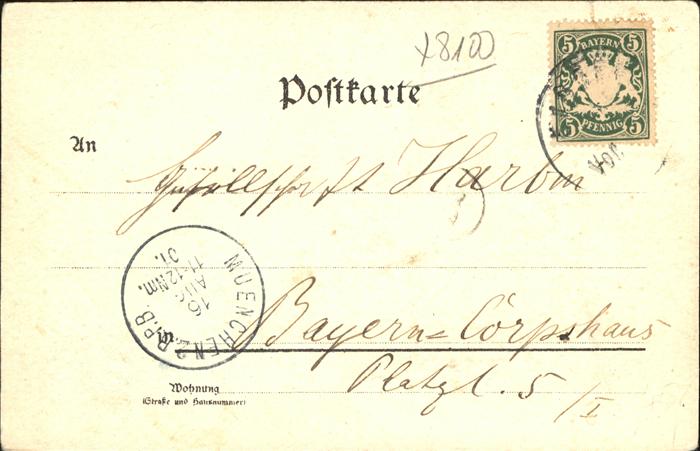 x8100
5 BAYERN 5
5 PFENNIG 5
Postkarte
An
Gesellschaft Harbni
MUENCHEN 2. B.P.B.
16
AUG
11-12Nm.
01.
Bayern=Corpshaus
Platzl. 5/I
Wohnung
(Straße und Hausnummer)